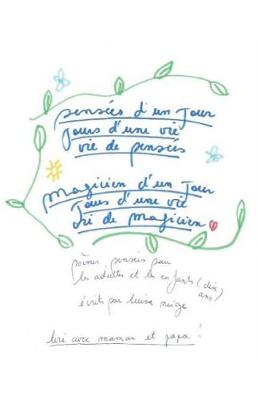 pensées d'un jour
Jours d'une vie
vie de pensées
magicien d'un jour
Jours d'une vie
Vie de magicien
poèmes, pensées pour
les adultes et les enfants (dix
ans)
écrits par luisa neige
lire avec maman et papa !